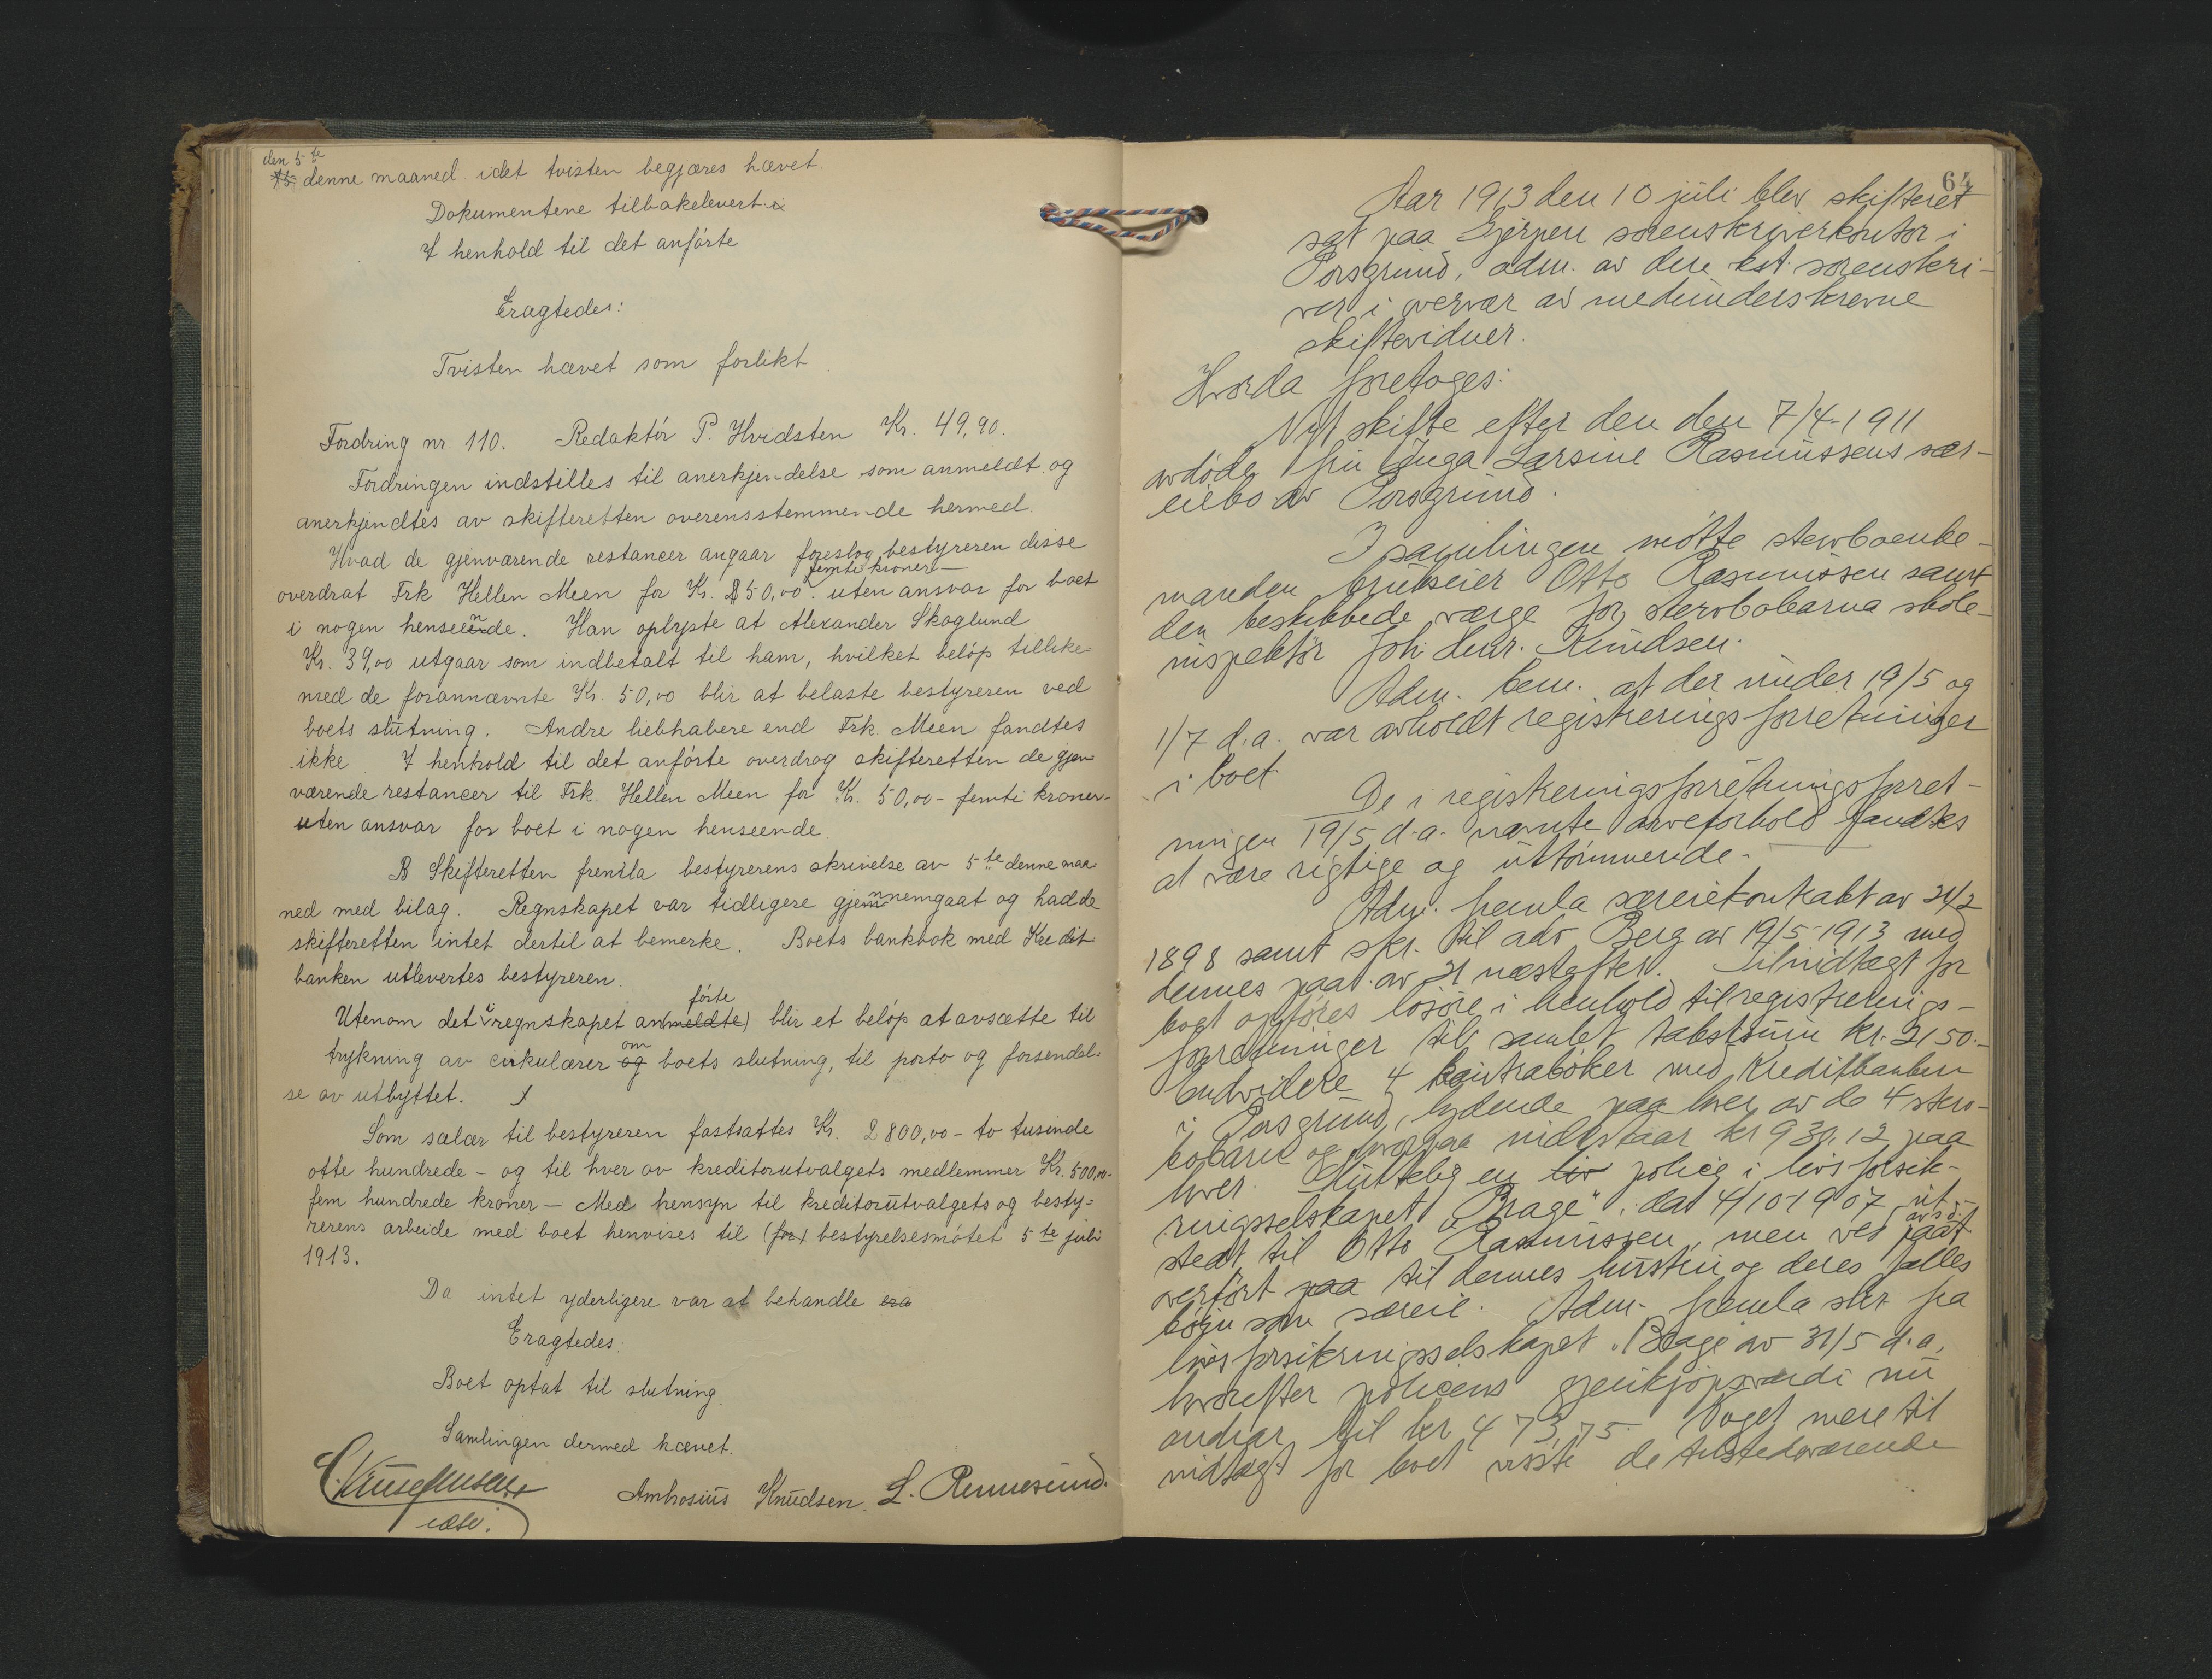 den 5te
15 denne maaned idet tvisten begjæres hævet.
Dokumentene tilbakelevert.
I henhold til det anførte
Eragtedes:
Tvisten hævet som forlikt.
Fordring nr. 110. Redaktör P. Hvidsten Kr. 49,90.
Fordringen indstilles til anerkjendelse som anmeldt og
anerkjendtes av skifteretten overensstemmende hermed
Hvad de gjenværende restancer angaar foreslog bestyreren disse
femti kroner -
overdrat Frk Hellen Meen for Kr. 50,00. uten ansvar for boet
i nogen henseende. Han oplyste at Alexander Skoglund
Kr. 39,00 utgaar som indbetalt til ham, hvilket beløp tillike-
med de forannævnte Kr. 50,00 blir at belaste bestyreren ved
boets slutning. Andre liebhabere end Frk. Meen fandtes
ikke. I henhold til det anførte overdrog skifteretten de gjen-
værende restancer til Frk. Hellen Meen for Kr. 50,00 - femti kroner -
uten ansvar for boet i nogen henseende.
B Skifteretten fremla bestyrerens skrivelse av 5te denne maa-
ned med bilag. Regnskapet var tidligere gjennemgaat og hadde
skifteretten intet dertil at bemerke. Boets bankbok med Kredit
banken utlevertes bestyreren.
förte
Utenom det i regnskapet an(meldte) blir et beløp at avsætte til
om
trykning av cirkulærer og boets slutning, til porto og forsendel-
se av utbyttet.
Som salær til bestyreren fastsattes Kr. 2800,00 - to tusinde
otte hundrede - og til hver av kreditorutvalgets medlemmer Kr. 500,00 -
fem hundrede kroner - Med hensyn til kreditorutvalgets og besty=
rerens arbeide med boet henvises til (for) bestyrelsesmötet 5te juli
1913.
Da intet yderligere var at behandle era
Eragtedes:
Boet optat til slutning.
Samlingen dermed hævet.
Ambrosius Knudsen. L. Rennesund.
64
Aar 1913 den 10 juli blev skifteret
sat paa Gjerpen sorenskriverkontor i
Porsgrund, adm. av den kst. sorenskri-
ver i overvær av medunderskrevne
skiftevidner.
Hvorda foretoges:
Nyt skifte efter den den 7/4-1911
avdöde fru Inga Larsine Rasmussens sær-
eiebo av Porsgrund.
I samlingen mötte stervboenke-
manden brukseier Otto Rasmussen samt
den beskikkede værge for stervbobarna skole-
inspektör Joh. Henr. Knudsen.
Adm. bem. at der under 19/5 og
1/7 d.a. var avholdt registreringsforretninger
i boet.
De i registreringsforretningsforret-
ningen 19/5 d.a. nævnte arveforhold fandtes
at være rigtige og uttömmende.
Adm. fremla særeiekontrakt av 24/2
1898 samt skr. til adv Berg av 19/5-1913 med
dennes paat. av 21 næstefter. Til indtægt for
boet opföres lösöre i henhold til registrerings-
forretninger til samlet takstsum kr. 2150.-
Endvidere 4 kontraböker med Kreditbanken
i Porsgrund, lydende paa hver av de 4 sterv-
bobarn og hvorpaa indestaar kr 930.12 paa
hver. Endelig en liv police i livsforsik-
ringsselskapet "Brage", dat 4/10-1907, ut-
stedt til Otto Rasmussen, men ved paat.
overfört paa til dennes hustru og deres fælles
börn som særeie. Adm. fremla skr fra
livsforsikringsselskapet "Brage" av 31/5 d.a,
hvorefter policens gjenkjöpsværdi nu
andrar til kr. 473,75. Noget mere til
indtægt for boet visste de tilstedeværende